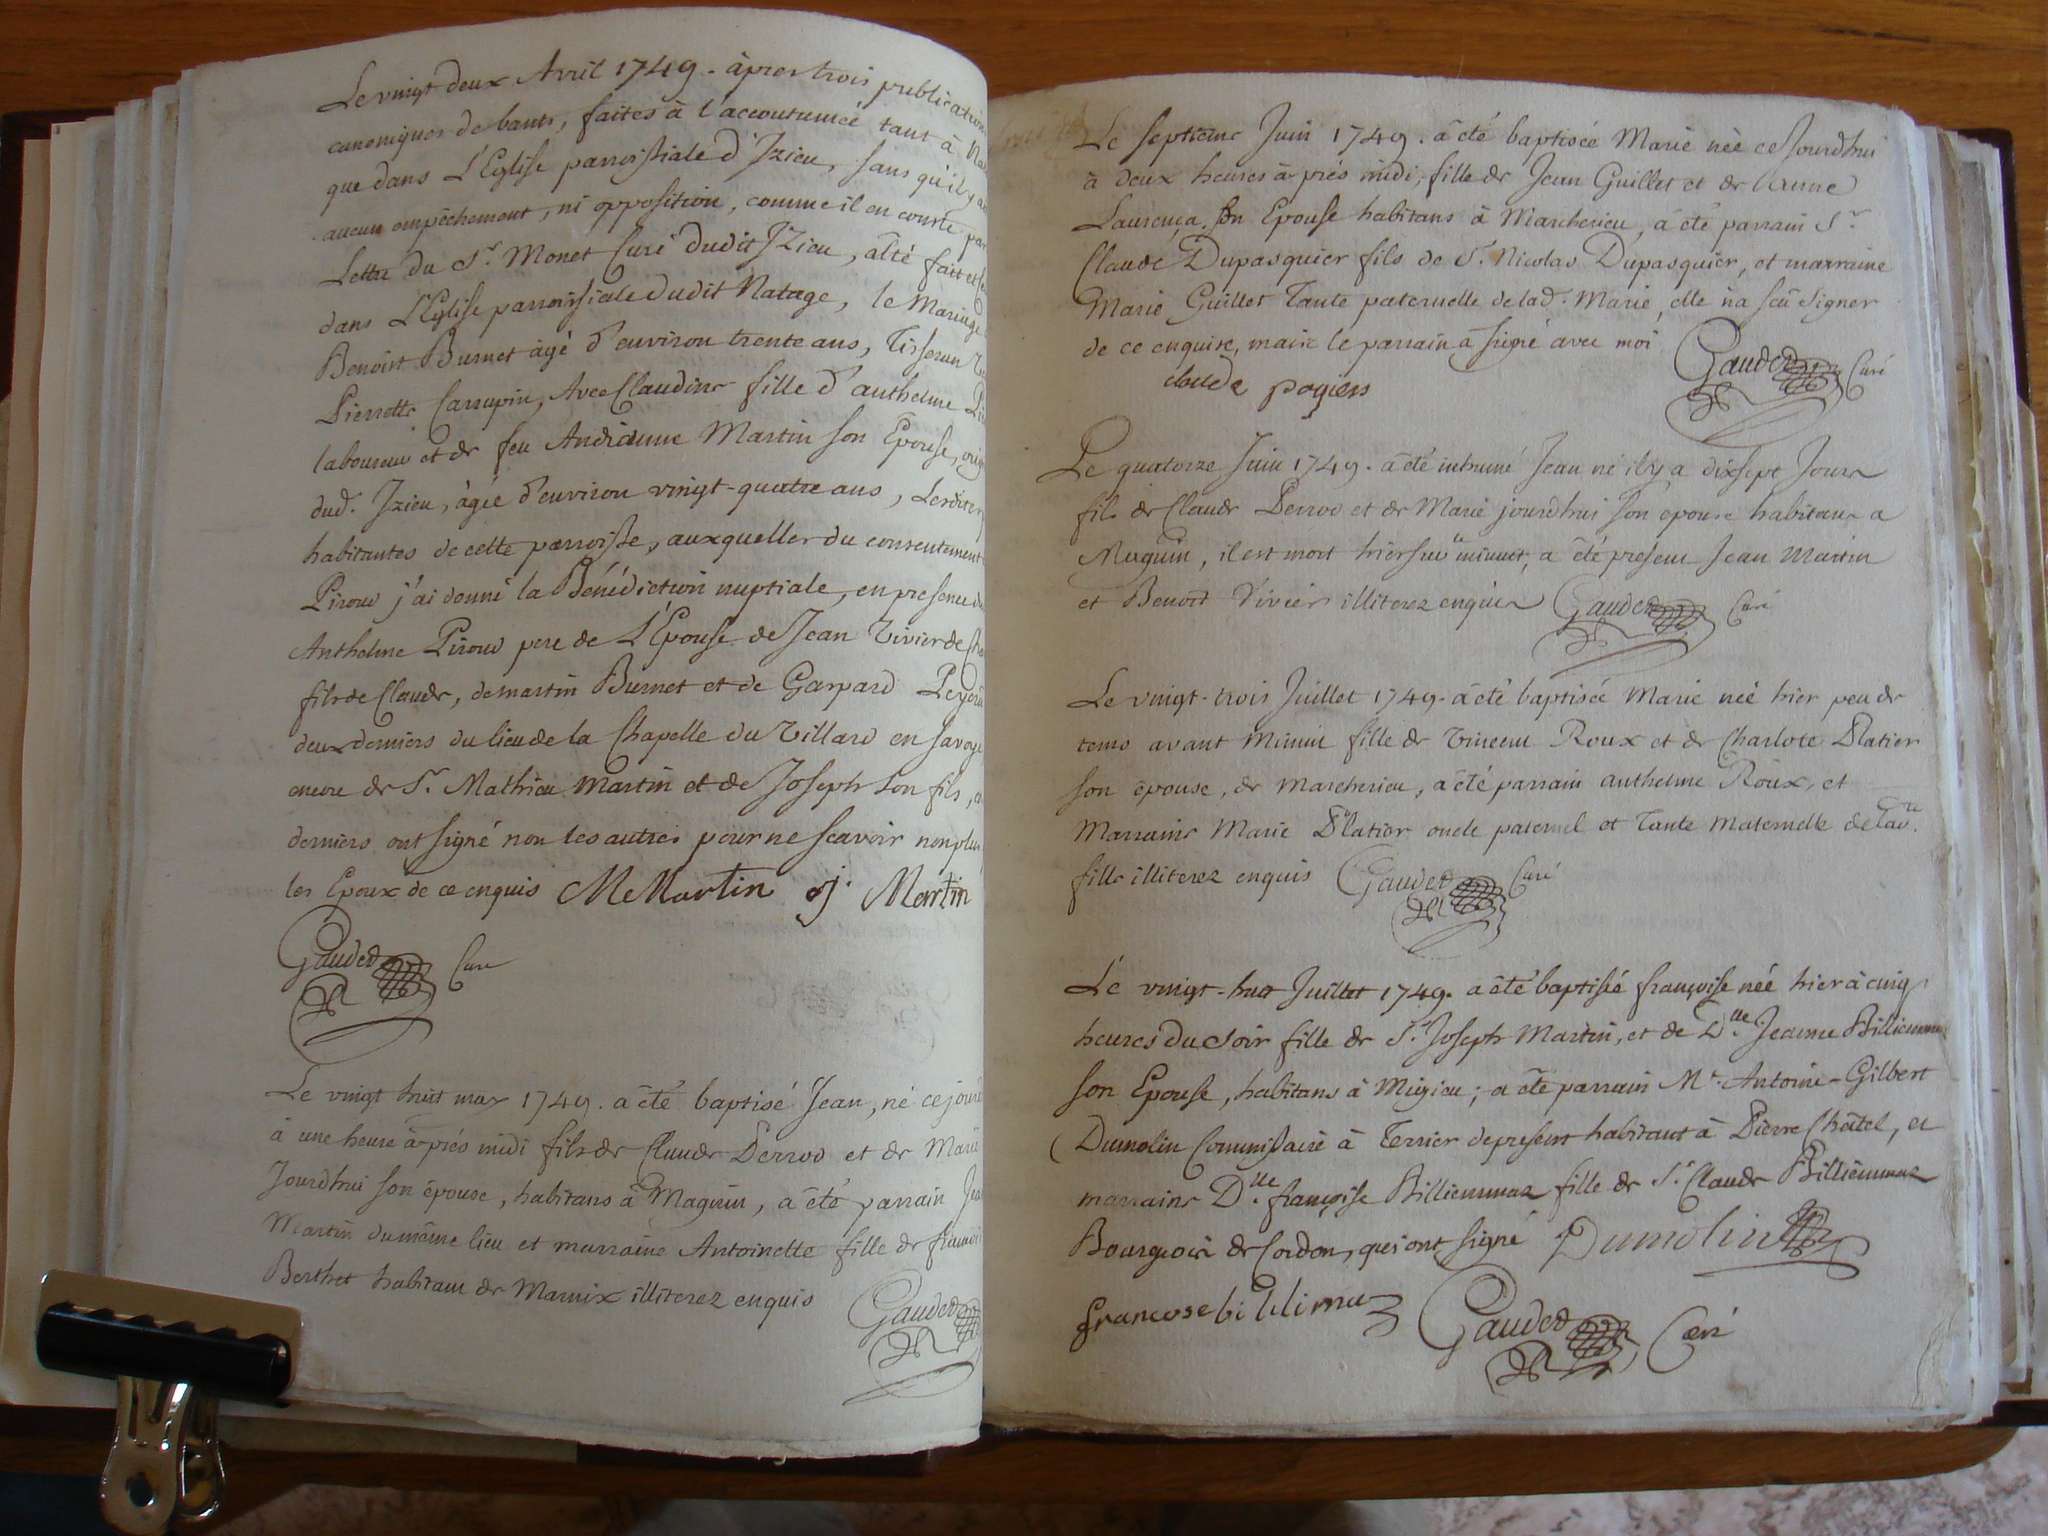 Le vingt deux Avril 1749. àpres trois publication
canoniques de bants, faites à l'accoutumée tant à
que dans L'Eglise parroissiale d'Izieu, sans qu'il y
aucun empêchement, ni opposition, comme il en conste par
Lettre du Sr. Monet Curé dudit Izieu, a êté fait et
dans L'Eglise parroissiale dudit Natage, le Mariage
Benoist Burnet âgé d'environ trente ans, Tisseran
Pierrette Carrupin, Avec Claudine fille d'anthelme
laboureur et de feu Andrianne Martin son Epouse,
dud. Izieu, âgée d'environ vingt-quatre ans,
habitantes de cette parroisse, auxquelles du consentement
Pirowd j'ai donné la Bénédiction nuptiale, en presence de
Anthelme Pirowd pere de L'Epouse de Jean Vivier de
fils de Claude, de martin Burnet et de Gaspard
deux derniers du lieu de la Chapelle du Villard en Savoye
encore de Sr. Mathieu Martin et de Joseph son fils,
derniers ont signé non les autres pour ne scavoir non plus
les Epoux de ce enquis M Martin j. Martin
Gauded Curé
Le vingt huit may 1749. a êté baptisé Jean, né ce jourd
à une heure àprés midi fils de Claude Perrod et de Marie
Jourdhui son épouse, habitans à Magnin, a êté parrain Jean
Martin du même lieu et marraine Antoinette fille de francois
Berthet habitant de Marnix illiterez enquis
Gauded
Le septieme Juin 1749. a êté baptisée Marie née ce Jourdhui
à deux heures àprés midi, fille de Jean Guillet et de
Laurença son Epouse habitans à Marcherieu, a êté parrain Sr.
Claude Dupasquier fils de Sr. Nicolas Dupasquier, et marraine
Marie Guillet Tante paternelle de lad. Marie, elle n'a sçû signer
de ce enquise, mais le parrain a signé avec moi
Gauded Curé
claude pagiers
Le quatorze Juin 1749. a êté inhumé Jean né il y a dixsept Jours
fils de Claude Perrod et de Marie jourdhui son épouse habitans a
Magnin, il est mort hier sur le minuit, a êté present Jean Martin
et Benoit Vivier illiterez enquis Gauded Curé
Le vingt-trois Juillet 1749. a êté baptisée Marie née hier peu de
tems avant Minuit fille de Vincent Roux et de Charlote Platier
son épouse, de Marcherieu, a êté parrain anthelme Roux, et
Marraine Marie Platier oncle paternel et Tante Maternelle de lad.te
fille illiterez enquis Gauded Curé
Le vingt-huit Juillet 1749. a êté baptisée françoise née hier à cinq
heures du soir fille de Sr. Joseph Martin, et de D.lle Jeanne Billiemmaz
son Epouse, habitans à Mugieu; a êté parrain Mr. Antoine-Gilbert
Dumolin Commissaire à Terrier depresent habitant à Pierre Châtel, et
marraine D.lle françoise Billiemmaz fille de Sr. Claude Billiemmaz
Bourgeois de Cordon, qui ont signé Dumolin
francoise billimaz Gauded Curé